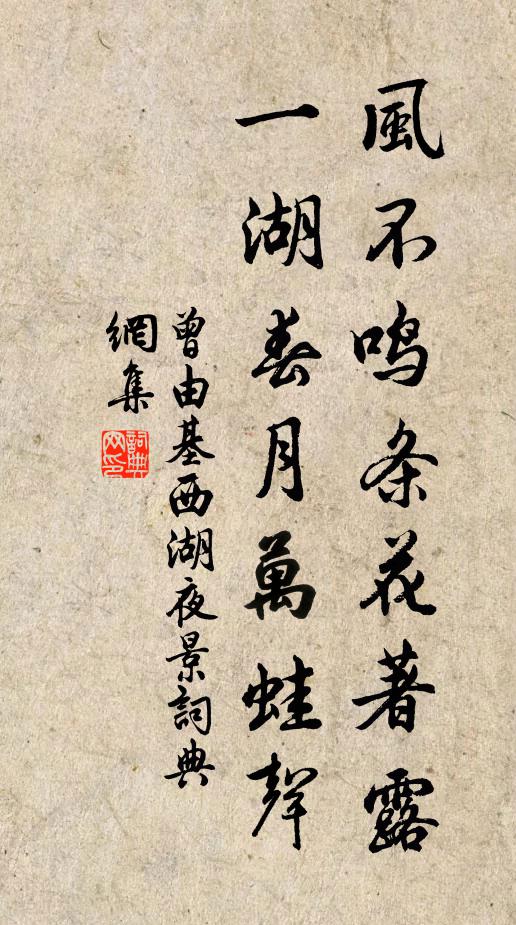 風不鸣条花著露
一湖春月萬蛙聲
曾由基西湖夜景詞典
網集
詞典网印